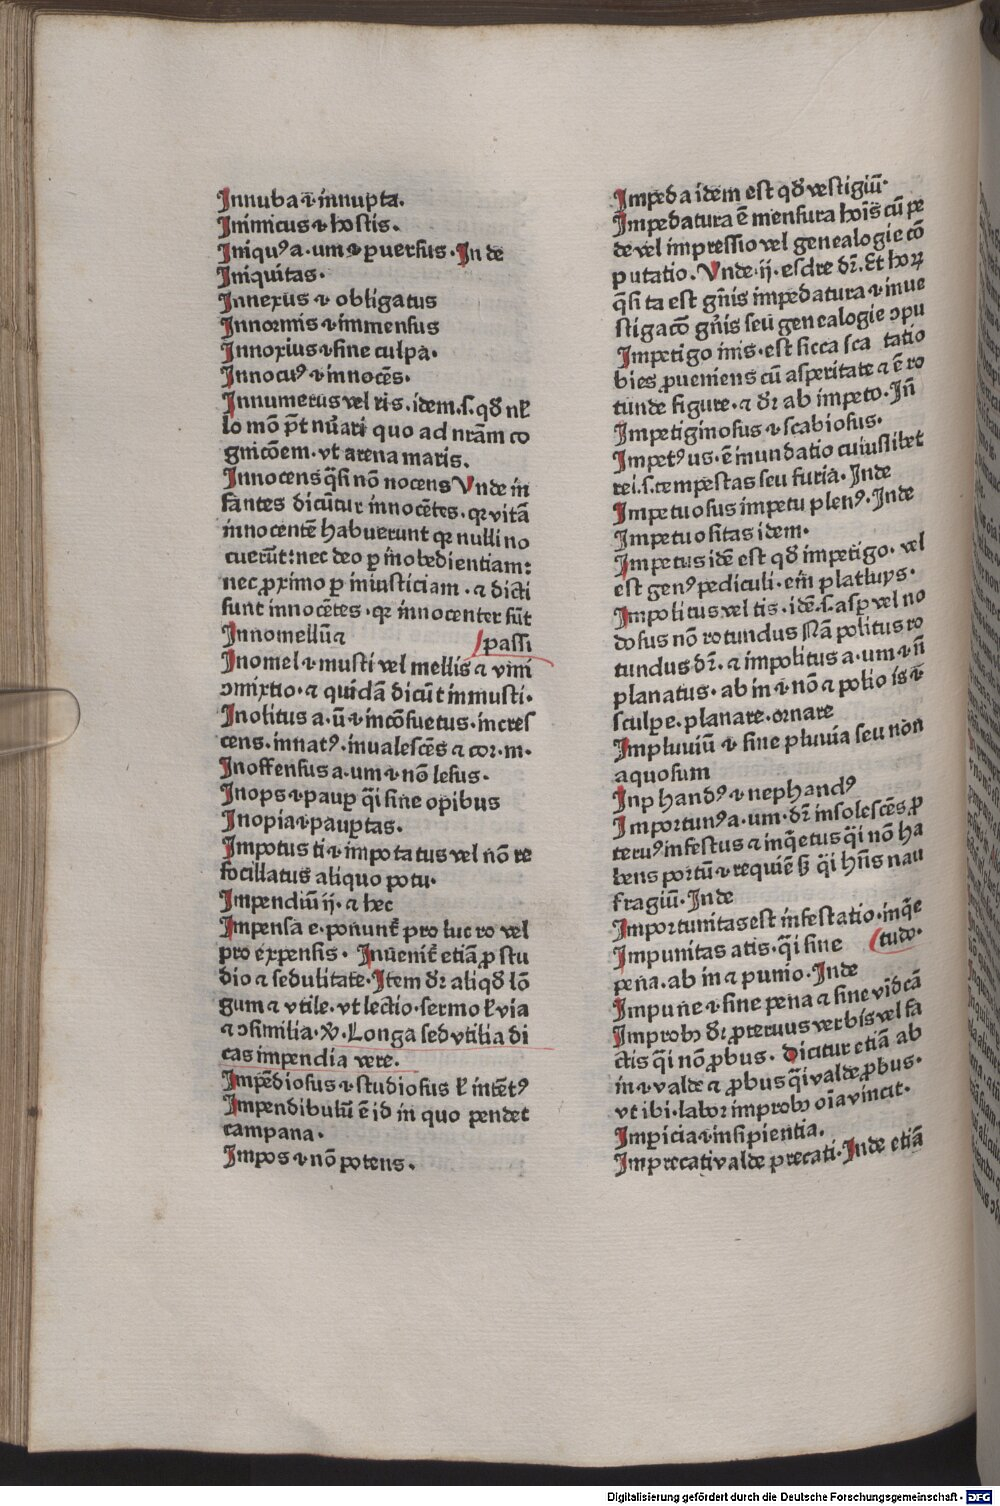 Innuba ⁊ innupta.
Inimicus ⁊ hostis.
Iniquꝰ a·um ⁊ puersus·In de
Iniquitas·
Innexus ⁊ obligatus
Innormis ⁊ immensus
Innoxius ⁊ sine culpa·
Innocuꝰ ⁊ innocēs·
Innumerus vel ris·idem·s·qd̄ nl̄
lo mō pt̄ nūari quo ad nrām co
gnicōem·vt arena maris.
Innocens q̄si nō nocens Vnde in
fantes dicūtur innocētes·qꝛ vitā
innocentē habuerunt qꝛ nulli no
cuerūt:nec deo ꝑ inobedientiam:
nec ꝓximo ꝑ iniusticiam·⁊ dicti
sunt innocētes·qꝛ innocenter sūt
Innomellū ⁊ passi
Inomel ⁊ musti vel mellis ⁊ vini
ꝯmixtio·⁊ quidā dicūt inmusti·
Inolitus a·ū ⁊ incōsuetus·incres
cens·innatꝰ·inualescēs ⁊ cor·m·
Inoffensus a·um ⁊ nō lesus·
Inops ⁊ pauꝑ q̄i sine opibus
Inopia ⁊ pauꝑtas·
Impotus ti ⁊ impotatus vel nō re
focillatus aliquo potu·
Impendiū ij·⁊ hec
Impensa e·ponunt̄ pro lucro vel
pro expensis·Inuenit̄ etiā ꝓ stu
dio ⁊ sedulitate·Item dr̄ aliqd̄ lō
gum ⁊ vtile·vt lectio·sermo ł via
⁊ ꝯsimilia·Ꝟ·Longa sed vtilia di
cas impendia vere.
Impēdiosus ⁊ studiosus ł intētꝰ
Impendibulū ē id in quo pendet
campana·
Impos ⁊ nō potens·
Impeda idem est qd̄ vestigiū·
Impedatura ē mensura hoīs cū pe
de vel impressio vel genealogie cō
putatio·Vnde·ij·esdre dr̄·Et hoꝝ
q̄sita est gn̄is impedatura ⁊ inue
stigacō gn̄is seu genealogie ꝯpu
Impetigo inis·est sicca sca tatio
bies ꝓueniens cū asperitate ⁊ ē ro
tunde figure·⁊ dr̄ ab impeto·Iñ
Impetiginosus ⁊ scabiosus·
Impetꝰ us·ē inundatio cuiuslibet
rei·s·tempestas seu furia·Inde
Impetuosus impetu plenꝰ·Inde
Impetuositas idem·
Impetus idē est qd̄ impetigo·vel
est genꝰ pediculi·em̄ platluys·
Impolitus vel tis·idē·s·asꝑ vel no
dosus nō rotundus Nā politus ro
tundus dr̄·⁊ impolitus a·um ⁊ ñ
planatus·ab in ⁊ nō ⁊ polio is ⁊
sculpe·planare·ornare
Impluuiū ⁊ sine pluuia seu non
aquosum
Inphandꝰ ⁊ nephandꝰ
Importunꝰ a·um·dr̄ insolescēs ꝓ
teruꝰ infestus ⁊ inq̄etus q̄i nō ha
bens portū ⁊ requiē ß q̄i hn̄s nau
fragiū·Inde
Importunitas est infestatio·inq̄e
Impunitas atis·q̄i sine tudo·
pena·ab in ⁊ punio·Inde
Impune ⁊ sine pena ⁊ sine vīdcā
Improbꝰ dr̄ ꝓteruus verbis vel fa
ctis q̄i nō ꝓbus·Dicitur etiā ab
in ⁊ valde ⁊ ꝓbus q̄i valde ꝓbus·
vt ibi·labor improbꝰ oīa vincit·
Imꝑicia ⁊ insipientia.
Imprecati valde precati·Inde etiā
Digitalisierung gefördert durch die Deutsche Forschungsgemeinschaft - DFG